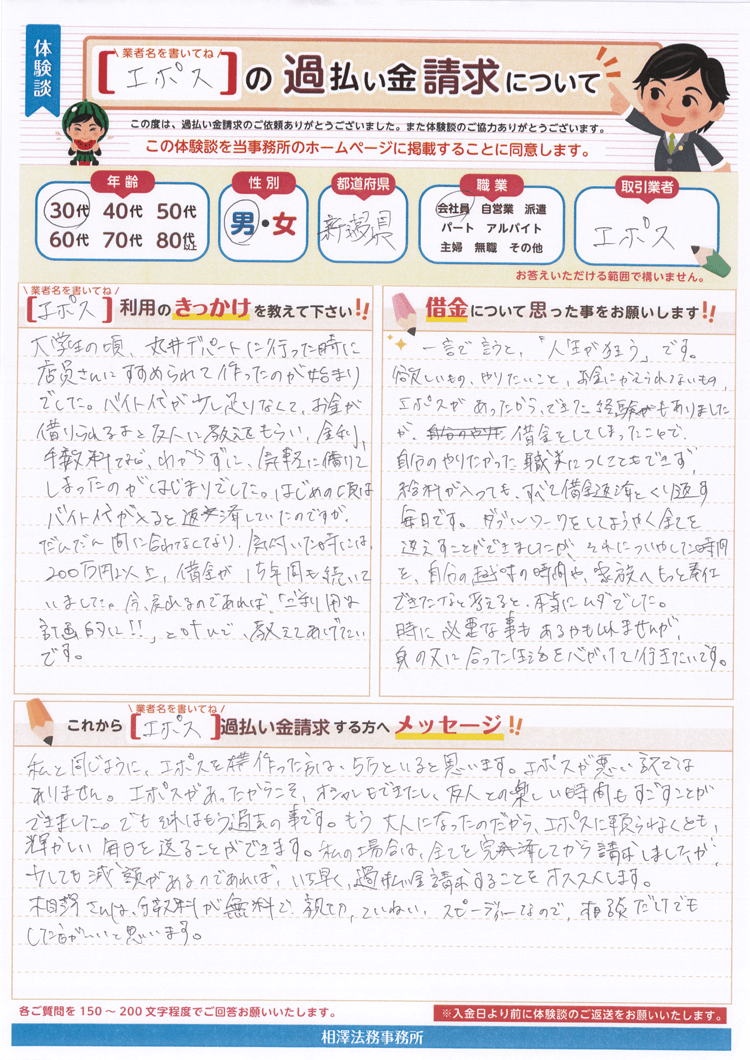 体験談
業者名を書いてね
[エポス]の過払い金請求について
この度は、過払い金請求のご依頼ありがとうございました。また体験談のご協力ありがとうございます。
この体験談を当事務所のホームページに掲載することに同意します。
年齢
30代 40代 50代
60代 70代 80代以上
性別
男・女
都道府県
新潟県
職業
会社員 自営業 派遣
パート アルバイト
主婦 無職 その他
取引業者
エポス
お答えいただける範囲で構いません。
業者名を書いてね
[エポス]利用のきっかけを教えて下さい!!
大学生の頃、丸井デパートに行った時に
店員さんにすすめられて作ったのが始まり
でした。バイト代が少し足りなくて、お金が
借りられるよと友人に教えてもらい、金利、
手数料など、わからずに、気軽に借りて
しまったのがはじまりでした。はじめの頃は
バイト代が入ると返済していたのですが、
だんだん間に合わなくなり、気付いた時には、
200万円以上、借金が15年間も続いて
いました。今、戻れるのであれば、「ご利用は
計画的に!!」と叫んで、教えてあげたい
です。
借金について思った事をお願いします!!
一言で言うと、「人生が狂う」です。
欲しいもの、やりたいこと、お金にかえられないもの、
エポスがあったから、できた経験もありました
が、借金をしてしまったことで、
自分のやりたかった職業につくこともできず、
給料が入っても、すべて借金返済とくり返す
毎日です。ダブルワークをしてようやく全てを
返えすことができましたが、それについやした時間
を、自分の趣味の時間や、家族へもっと奉仕
できたなと考えると、本当にムダでした。
時に必要な事もあるかもしれませんが、
身の丈に合った生活を心がけて行きたいです。
業者名を書いてね
これから[エポス]過払い金請求する方へメッセージ!!
私と同じように、エポスを作った方は、多いと思います。エポスが悪い訳では
ありません。エポスがあったからこそ、オシャレもできたし、友人との楽しい時間もすごすことが
できました。でもそれはもう過去の事です。もう大人になったのだから、エポスに頼られなくとも、
輝かしい毎日を送ることができます。私の場合は、全てを完済してから請求しましたが、
少しでも減額があるのであれば、いち早く、過払い金請求することをオススメします。
相澤さんは、手数料が無料で、親切、ていねい、スピーディーなので、相談だけでも
した方がいいと思います。
各ご質問を150～200文字程度でご回答お願いいたします。
※入金日より前に体験談のご返送をお願いいたします。
相澤法務事務所